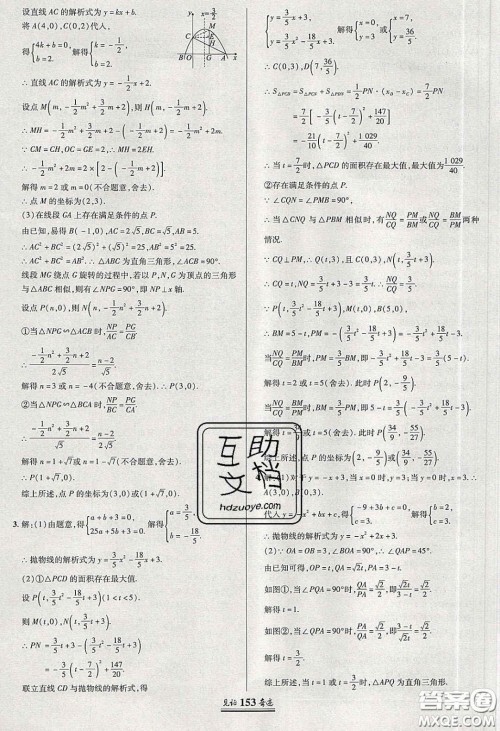 设直线 AC 的解析式为 y = kx + b.
将 A(4,0),C(0,2)代入,
得{4k + b = 0, b = 2. 解得{k = -1/2, b = 2.
∴ 直线 AC 的解析式为 y = -1/2 x + 2.
设点 M(m, -1/2 m² + 3/2 m + 2), 则 H(m, -1/2 m + 2).
∴ MH = -1/2 m² + 3/2 m + 2 - (-1/2 m + 2) = -1/2 m² + 2m.
∵ CM = CH, OG = GE = 2, ∴ MH = 2EH.
∴ -1/2 m² + 2m = 2 × [2 - (-1/2 m + 2)].
解得 m = 2 或 m = 0(不合题意,舍去).
∴ 点 M 的坐标为(2,3).
(3)在线段 GA 上存在满足条件的点 P.
由已知,易得 B(-1,0), AC = 2√5, BC = √5, AB = 5.
∴ AC² + BC² = (2√5)² + (√5)² = 25, AB² = 5² = 25.
∴ AC² + BC² = AB². ∴ ∠ACB = 90°.
线段 MG 绕点 G 旋转的过程中,若以 N,P,G 为顶点的三角形
与△ABC 相似,则有∠NPG = 90°, 即 NP⊥x 轴.
设点 P(n,0), 则 N(n, -1/2 n² + 3/2 n + 2).
①当△NPG∽△ACB 时, NP/AC = PG/BC.
∴ (-1/2 n² + 3/2 n + 2)/2√5 = (n - 2)/√5.
解得 n = 3 或 n = -4(不合题意,舍去). ∴ P(3,0).
②当△NPG∽△BCA 时, NP/BC = PG/AC.
∴ (-1/2 n² + 3/2 n + 2)/√5 = (n - 2)/2√5.
解得 n = 1 + √7 或 n = 1 - √7(不合题意,舍去).
∴ P(1 + √7, 0).
综上所述,点 P 的坐标为(3,0)或(1 + √7, 0).
3. 解:(1)由题意,得{a + b + 3 = 0, 25a + 5b + 3 = 0. 解得{a = 3/5, b = -18/5.
∴ 抛物线的解析式为 y = 3/5 x² - 18/5 x + 3.
(2)①△PCD 的面积存在最大值.
设 P(t, 3/5 t² - 18/5 t + 3)(1 < t < 5).
则 M(t,0), N(t, 3/5 t + 3).
∴ PN = 3/5 t + 3 - (3/5 t² - 18/5 t + 3)
= -3/5 (t - 7/2)² + 147/20.
联立直线 CD 与抛物线的解析式,得
{y = 3/5 x + 3, y = 3/5 x² - 18/5 x + 3. 解得{x = 0, y = 3 或{x = 7, y = 36/5.
∴ C(0,3), D(7, 36/5).
∴ S△PCD = S△PCN + S△PDN = 1/2 PN·(x_D - x_C)
= 7/2 [-3/5 (t - 7/2)² + 147/20]
= -21/10 (t - 7/2)² + 1029/40.
∴ 当 t = 7/2 时,△PCD 的面积存在最大值,最大值为 1029/40.
②存在满足条件的点 P.
∵ ∠CQN = ∠PMB = 90°,
∴ 当△CNQ 与△PBM 相似时,有 NQ/CQ = PM/BM 或 NQ/CQ = BM/PM 两种
情况.
∵ CQ⊥PM, 垂足为 Q, ∴ Q(t,3), 且 C(0,3), N(t, 3/5 t + 3).
∴ CQ = t, NQ = 3/5 t + 3 - 3 = 3/5 t. ∴ NQ/CQ = 3/5.
∵ P(t, 3/5 t² - 18/5 t + 3), M(t,0), B(5,0),
∴ BM = 5 - t, PM = -3/5 t² + 18/5 t - 3.
当 NQ/CQ = PM/BM 时, PM = 3/5 BM, 即 -3/5 t² + 18/5 t - 3 = 3/5 (5 - t).
解得 t = 2 或 t = 5(舍去). 此时 P(2, -9/5).
当 NQ/CQ = BM/PM 时, BM = 3/5 PM, 即 5 - t = 3/5 (-3/5 t² + 18/5 t - 3).
解得 t = 34/9 或 t = 5(舍去). 此时 P(34/9, -55/27).
综上所述,点 P 的坐标为(2, -9/5)或(34/9, -55/27).
A(3,0), B(0,3).
代入 y = -x² + bx + c, 得{-9 + 3b + c = 0, c = 3. 解得{b = 2, c = 3.
∴ 抛物线的解析式为 y = -x² + 2x + 3.
(2)∵ OA = OB, ∠BOA = 90°, ∴ ∠QAP = 45°.
如图①,当∠PQA = 90°时, QA/PA = √2/2, 即 √2t/(3 - t) = √2/2.
解得 t = 1.
如图②,当∠QPA = 90°时, PA/QA = √2/2, 即 (3 - t)/√2t = √2/2.
解得 t = 3/2.
综上所述,当 t = 1 或 t = 3/2 时,△PQA 为直角三角形.
互助文档
hdzuoye.com
153
答案圈
MXQE.COM